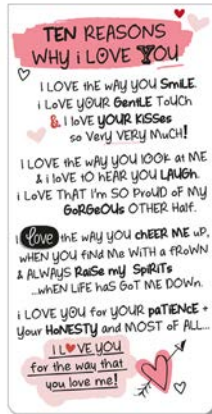 TEN REASONS
WHY i LOVE YOU
I LOVE thE WAY YOU SmiLE.
i LovE yOUR GentLE Touch
& I loVE YOUR KiSSes
so VerY VERY MuCH!
I LOVE thE WAY YOU lOOk at ME
& i lovE tO hEAR YOU LAUGh.
i LovE ThAT I'm SO PrOUD OF My
GoRGeOUs OTHER HaLf.
I love thE WAY YOU cHEER ME uP,
wHEN YOU fiNd Me WiTH a fROWN
& ALWAYS RaiSe my SpiRiTS
...wHEN LiFE haS GoT ME DOWn.
i LOVE YOU for YOUR paTiENcE +
Your HoNESTy and MOST OF ALL...
I LOVE YOU
for the way that
you love me!